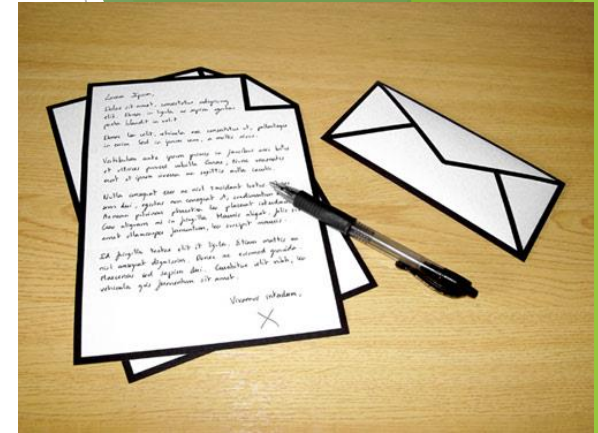 Lorem Ipsum,
Dolor sit amet, consectetur adipiscing
elit. Etiam in ligula ac sapien
porta blandit in velit
Etiam leo velit, vehicula non consectetur et, pellentesque
in enim. Sed in ipsum sem, a mollis
Vestibulum ante ipsum primis in faucibus orci luctus
et ultrices posuere cubilia Curae; Nunc venenatis
nunc et ipsum viverra ac sagittis nulla iaculis.
Nulla consequat sem ac nisl tincidunt luctus
sem dui, egestas non consequat
Aenean pulvinar pharetra leo placerat
Cras aliquam mi in fringilla Mauris aliquet, felis
amet ullamcorper fermentum, leo suscipit
Ed fringilla tortor elit et ligula. Etiam mattis
nisl consequat dignissim. Donec ac euismod gravida
Maecenas sed sapien dui. Curabitur elit nibh,
vehicula quis fermentum sit amet.
Vivamus interdum,
X